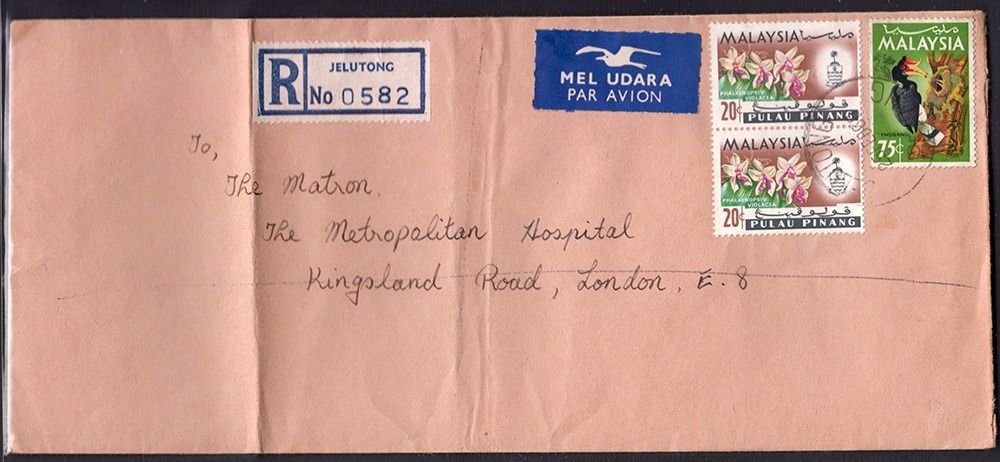 R
JELUTONG
No 0582
MEL UDARA
PAR AVION
MALAYSIA مليسيا
PHALAENOPSIS VIOLACEA
20¢
ڤولو ڤينڠ
PULAU PINANG
MALAYSIA مليسيا
PHALAENOPSIS VIOLACEA
20¢
ڤولو ڤينڠ
PULAU PINANG
مليسيا
MALAYSIA
ENGGANG
75¢
To,
The Matron.
The Metropolitan Hospital
Kingsland Road, London, E. 8